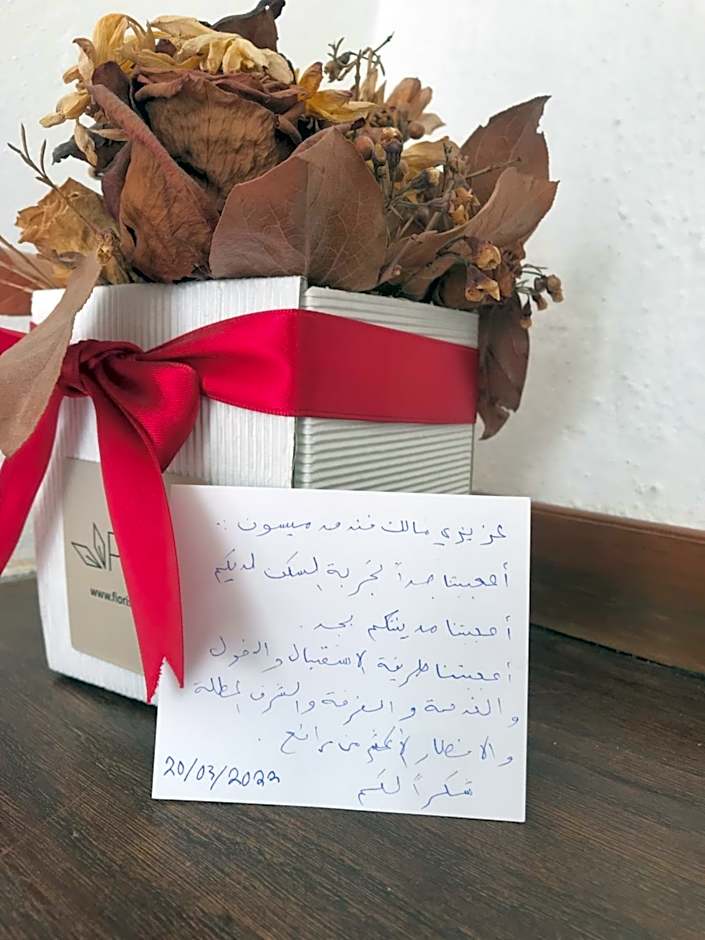 عزيزي مالك فندق ميسون ..
أعجبتنا جداً تجربة السكن لديكم
أعجبتنا مدينتكم بجد .
أعجبتنا طريقة الاستقبال والدخول
والخدمة والغرفة والشرف المطلة
والافطار الأكثر من رائع .
شكراً لكم
20/03/2022
www.floris